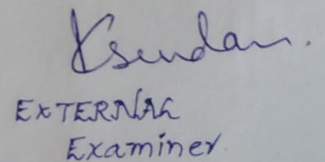 Ksundar.
EXTERNAL
Examiner